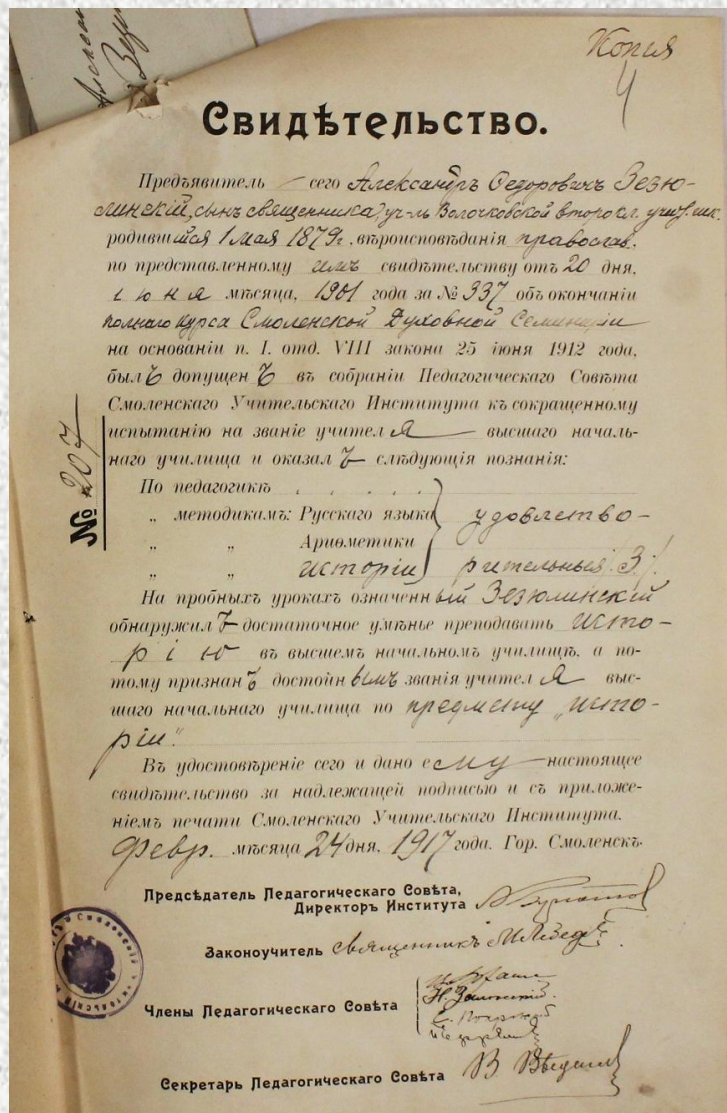 Копия
4
Свидѣтельство.
Предъявитель сего Александръ Ѳедоровичъ Зезю-
линскій, сынъ священника, уч-ль Волочковской второкл. учит. шк.
родившійся 1 мая 1879 г., вѣроисповѣданія православ.
по представленному имъ свидѣтельству отъ 20 дня,
іюня мѣсяца, 1901 года за № 337 объ окончаніи
полнаго курса Смоленской Духовной Семинаріи
на основаніи п. I. отд. VIII закона 25 іюня 1912 года,
былъ допущенъ въ собраніи Педагогическаго Совѣта
Смоленскаго Учительскаго Института къ сокращенному
испытанію на званіе учителя высшаго началь-
наго училища и оказалъ слѣдующія познанія:
№ 207
По педагогикѣ . . . . .
„ методикамъ: Русскаго языка удовлетво-
„ „ Ариѳметики
„ „ исторіи рительныя /3/.
На пробныхъ урокахъ означенный Зезюлинскій
обнаружилъ достаточное умѣнье преподавать исто-
рію въ высшемъ начальномъ училищѣ, а по-
тому признанъ достойнымъ званія учителя выс-
шаго начальнаго училища по предмету „исто-
ріи".
Въ удостовѣреніе сего и дано ему настоящее
свидѣтельство за надлежащей подписью и съ приложе-
ніемъ печати Смоленскаго Учительскаго Института.
Февр. мѣсяца 24 дня, 1917 года. Гор. Смоленскъ.
Предсѣдатель Педагогическаго Совѣта,
Директоръ Института
Законоучитель Священникъ
Члены Педагогическаго Совѣта
Секретарь Педагогическаго Совѣта В.